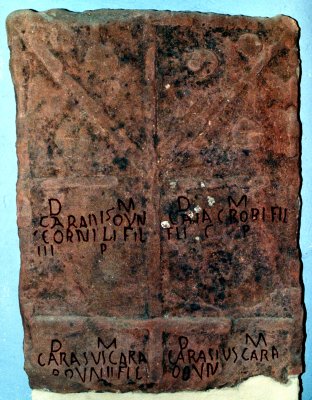 D M
CARANISOUN
CORNILIFIL
III P
D M
CROBIFII
FII C P
D M
CARASUSCARA
DOUNIIFIL
D M
CARASIUSCARA
DOUN